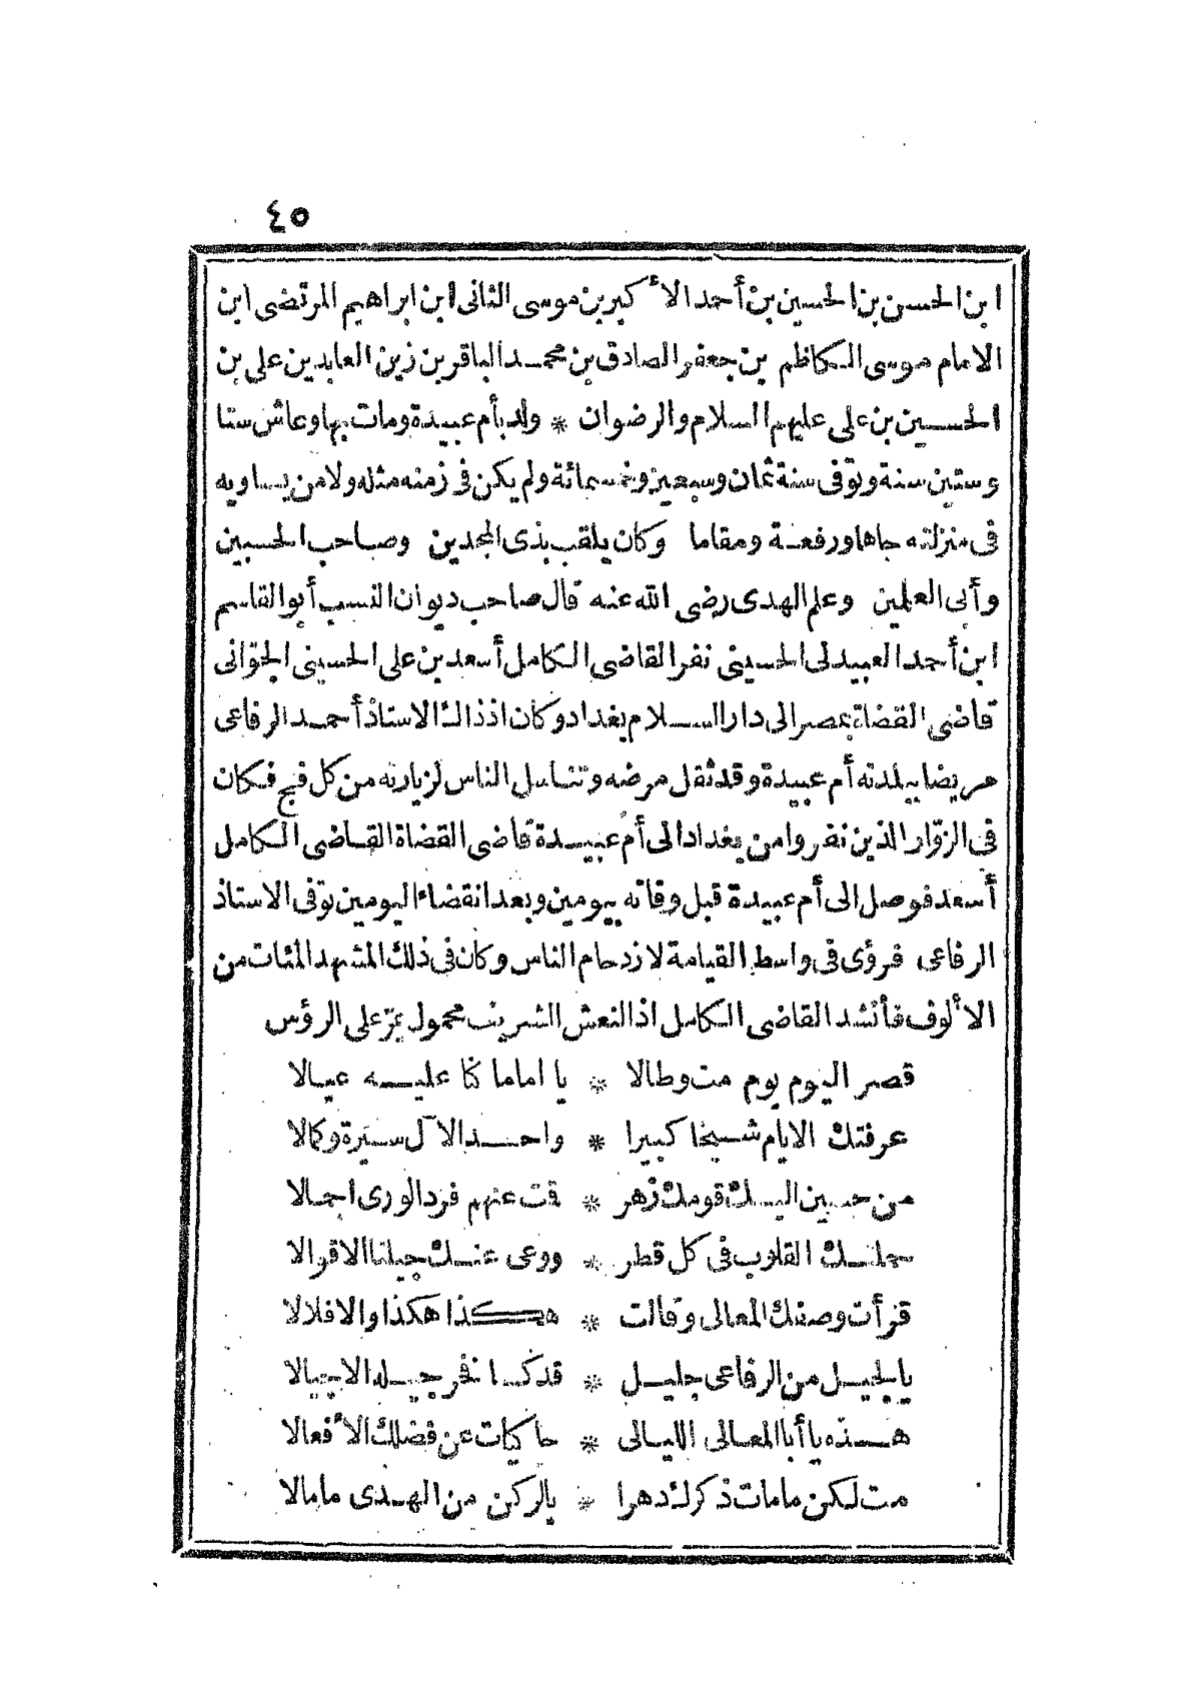 ٤٥
ابن الحسن بن الحسين بن أحمد الأكبر بن موسى الثانى ابن ابراهيم المرتضى ابن
الامام موسى الكاظم بن جعفر الصادق بن محمد الباقر بن زين العابدين على بن
الحسين بن على عليهم السلام والرضوان * ولد بأم عبيدة ومات بها وعاش ستا
وستين سنة وتوفى سنة ثمان وسبعين وخمسمائة ولم يكن فى زمنه مثله ولا من يساويه
فى منزلته جاها ورفعة ومقاما وكان يلقب بذى المجدين وصاحب الحسبين
وأبى العلمين وعلم الهدى رضى الله عنه قال صاحب ديوان النسب أبو القاسم
ابن أحمد العبيدلى الحسينى نفر القاضى الكامل أسعد بن على الحسينى الجوّانى
قاضى القضاة بمصر الى دار السلام بغداد وكان اذ ذاك الاستاذ أحمد الرفاعى
مريضا ببلدته أم عبيدة وقد ثقل مرضه وتناسل الناس لزيارته من كل فج فكان
فى الزوّار الذين نفروا من بغداد الى أم عبيدة قاضى القضاة القاضى الكامل
أسعد فوصل الى أم عبيدة قبل وفاته بيومين وبعد انقضاء اليومين توفى الاستاذ
الرفاعى فرؤى فى واسط القيامة لازدحام الناس وكان فى ذلك المشهد المئات من
الألوف فأنشد القاضى الكامل اذ النعش الشريف محمول يمرّ على الرؤس
قصر اليوم يوم مت وطالا * يا اماما كنا عليه عيالا
عرفتك الايام شيخا كبيرا * واحد الآل سيرة وكمالا
من حسين اليك قومك زهر * قت عنهم فرد الورى اجمالا
جلنك القلوب فى كل قطر * ووعى عنك جيلنا الاقوالا
قرأت وصفك المعالى وقالت * هكذا هكذا والا فلالا
يا لجيل من الرفاعى جليل * قد كسا نفر جيله الاجيالا
هذه يا أبا المعالى الليالى * حاكيات عن فضلك الأفعالا
مت لكن ما مات ذكرك دهرا * يا لركن من الهدى ما مالا